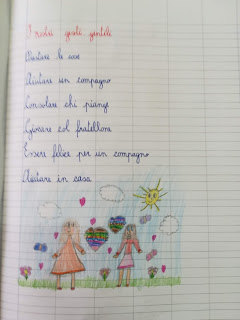 I nostri gesti gentili
Aiutare le
Aiutare un compagno
Consolare chi piange
Giocare col fratellino
Essere felice per un compagno
Aiutare in casa